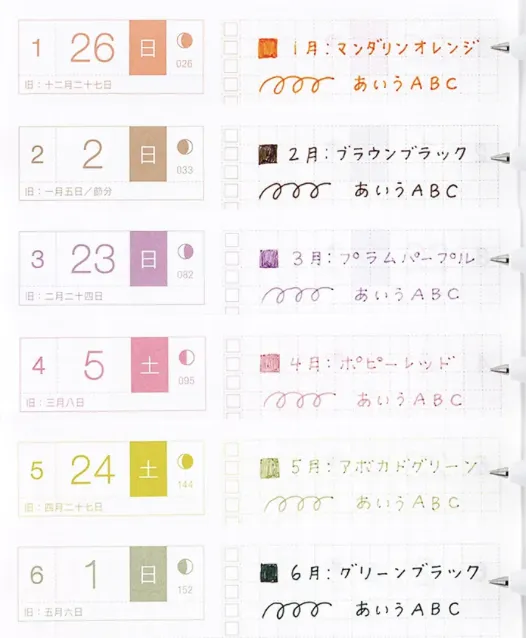 1 26 日 026
旧：十二月二十七日
1月：マンダリンオレンジ
あいうABC
2 2 日 033
旧：一月五日／節分
2月：ブラウンブラック
あいうABC
3 23 日 082
旧：二月二十四日
3月：プラムパープル
あいうABC
4 5 土 095
旧：三月八日
4月：ポピーレッド
あいうABC
5 24 土 144
旧：四月二十七日
5月：アボカドグリーン
あいうABC
6 1 日 152
旧：五月六日
6月：グリーンブラック
あいうABC